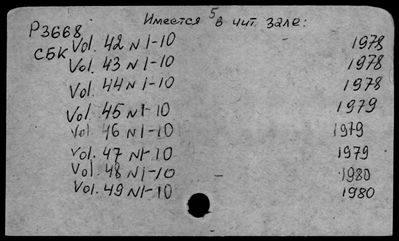 Имеется в чит. зале:
Р3668
СБК
Vol. 42 N 1-10 1978
Vol. 43 N 1-10 1978
Vol. 44 N 1-10 1978
Vol. 45 N 1-10 1979
Vol. 46 N 1-10 1979
Vol. 47 N 1-10 1979
Vol. 48 N 1-10 1980
Vol. 49 N 1-10 1980